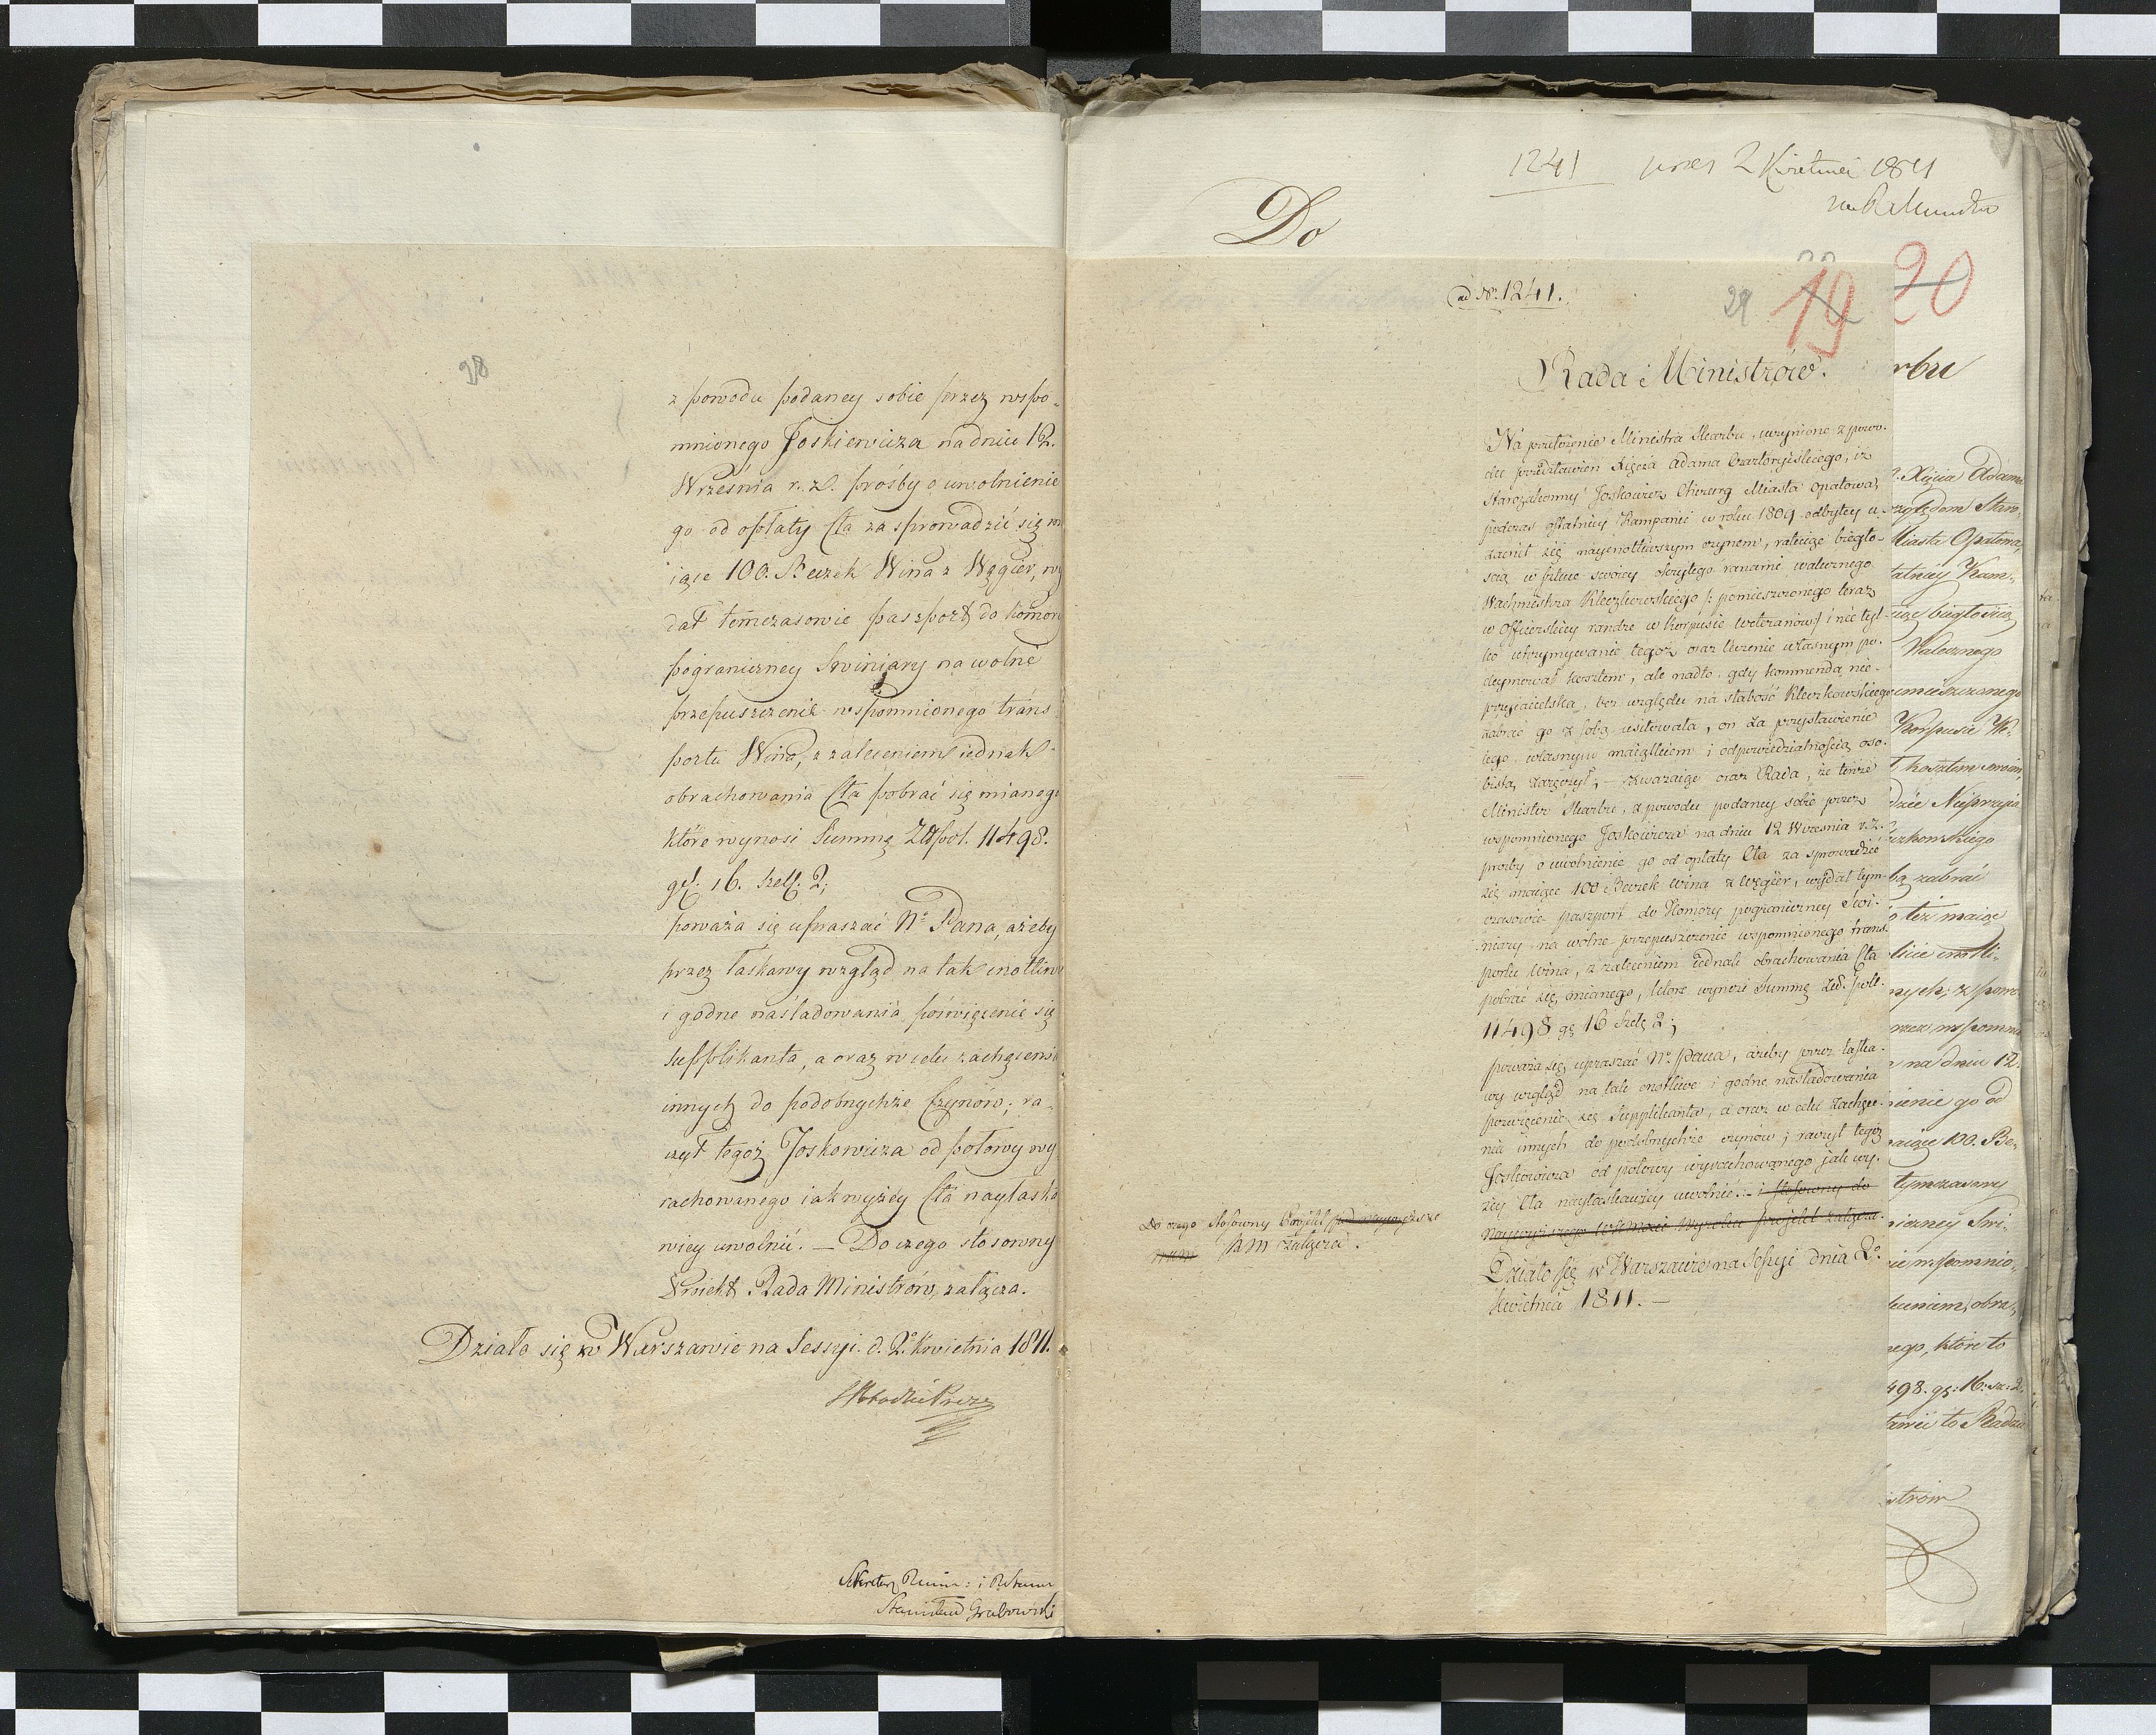 28
z powodu podaney sobie przez wspo-
mnionego Joskiewicza na dniu 12.
Września r. z. prośby o uwolnienie
go od opłaty Cła za sprowadzić się m
iące 100. Beczek Wina z Węgier, wy
dał témczasowie paszport do komory
pograniczney Swiniary na wolné
przepuszczenie wspomnionego trans
portu Wina, z zaleceniem iednak
obrachowania Cła pobrać się mianego
które wynosi Summę Złpol. 11498.
gr. 16. szel. 2;
poważa się upraszać Nº Pana, ażeby
przez łaskawy wzgląd na tak cnotliwe
i godne naśladowania poświęcenie się
supplikanta, a oraz w celu zachęcenia
innych do podobnychże Czynów; ra-
czył tegoż Joskowicza od połowy wy
rachowanego iak wyżéy Cła nayłaska
wiey uwolnić. — Do czego stosowny
Proiekt Rada Ministrów, załącza.
Działo się w Warszawie na Sessyi. d. 2º Kwietnia 1811.
Sekretarz
Stanisław Grabowski
1241 2 Kwietnia 1811
Do
ad Nº. 1241.
29 19 20
Rada Ministrów.
Na przełożenie Ministra Skarbu, uczynione z powo-
du przedstawień Xięcia Adama Czartoryiskiego, iż
Starozakonny Joskowicz Chirurg Miasta Opatowa,
podczas ostatniey Kampanii w roku 1809 odbytey u-
zacnił się naycnotliwszym czynem, ratuiąc biegło-
scią w sztuce swoiey okrytego ranami walecznego
Wachmistrza Kleczkowskiego /: pomieszczonego teraz
w Officerskiey randze w Korpusie Weteranów/ i nie tyl-
ko utrzymywanie tegoż oraz leczenie własnym po-
deymował kosztem, ale nadto, gdy kommenda nie-
przyiacielska, bez względu na słabość Kleczkowskiego
zabrać go z sobą usiłowała, on za przystawienie
iego własnym maiątkiem i odpowiedzialnością oso-
bistą zaręczył; — zważaiąc oraz Rada, że tenże
Minister Skarbu, z powodu podaney sobie przez
wspomnionego Joskowicza na dniu 12 Wrzesnia r. z.
prozby o uwolnienie go od opłaty Cła za sprowadzić
się maiące 100 Beczek wina z Węgier, wydał tym-
czasowie paszport do Komory pograniczney Swi-
niary na wolne przepuszczenie wspomnionego trans-
portu wina, z zaleceniem iednak obrachowania Cła
pobrać się mianego, które wynosi Summę Zł. pol.
11498 gr 16 szel 2;
poważa się upraszać Nº Pana, ażeby przez łaska-
wy wzgląd na tak cnotliwe i godne nasladowania
poswięcenie się Supplikanta, a oraz w celu zachęce-
nia innych do podobnychże czynów; raczył tegoż
Joskowicza od połowy wyrachowanego jak wy-
żey Cła nayłaskawiey uwolnić. — i stosowny do
projekt załącza.
Do czego stosowny Projekt
RM załącza.
Działo się w Warszawie na Sessyi dnia 2º
Kwietnia 1811. —
rbu
Xięcia Adama
względem Staro
Miasta Opatowa,
tatniey Kam-
iąc biegłością
Walecznego
umieszczonego
Korpusie We-
kosztem swoim,
Nieprzyia
czkowskiego
bą zabrać
maiąc
nych; z powo
wspomnio
na dniu 12.
ienie go od
maiące 100. Be-
tymczasowy
niczney Swi-
wspomnio-
leceniem, obra-
nego, które to
498. gr: 16. sz: 2.
to Radzie
istrów